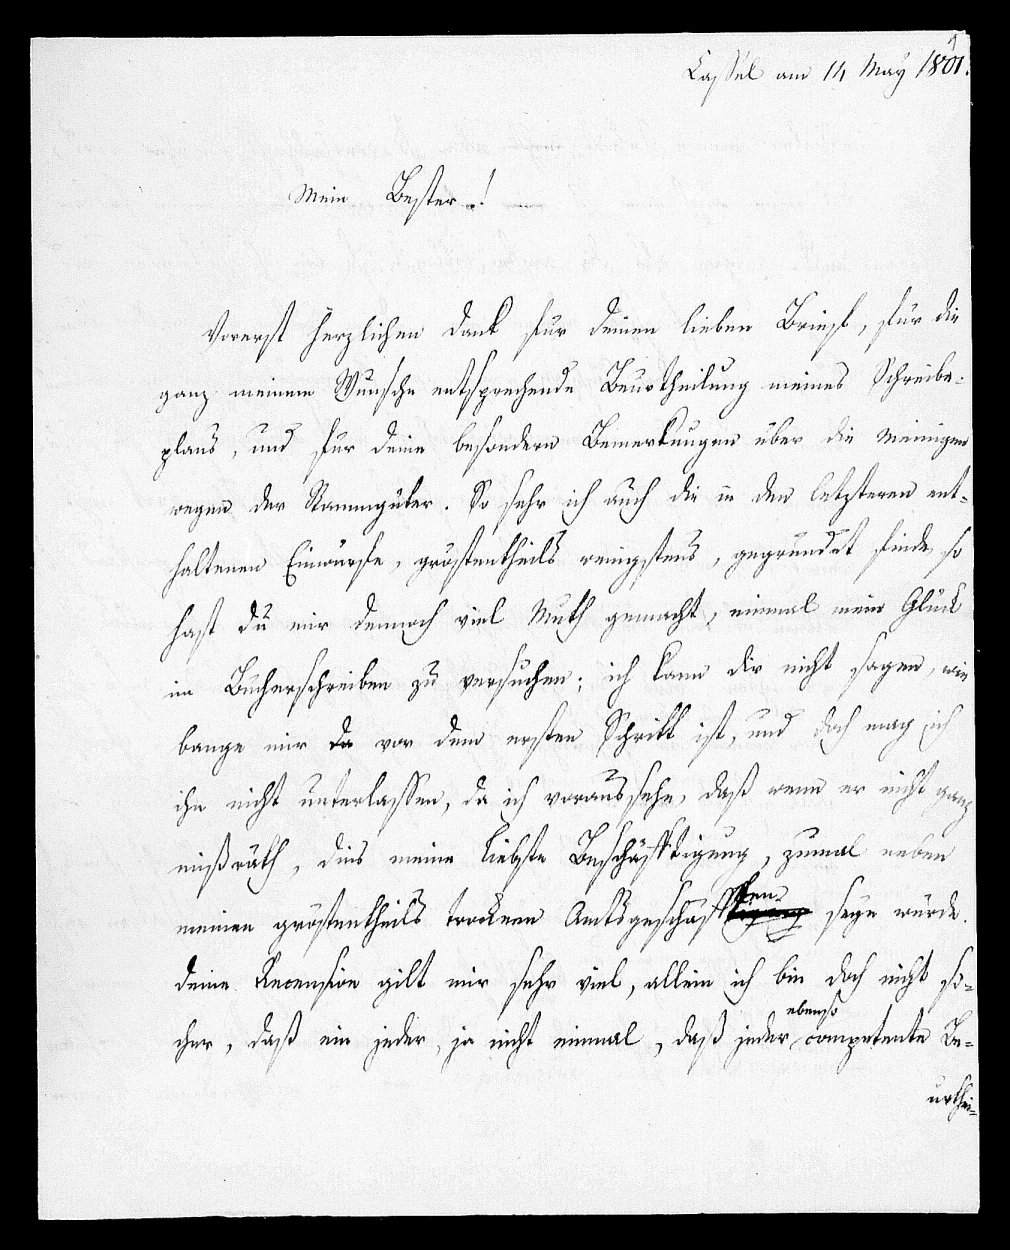 1
Cassel am 14 May 1801.
Mein Bester!
Vorerst herzlichen Dank für deinen lieben Brief, für die
ganz meinem Wunsche entsprechende Beurtheilung meines Schreibe-
plans, und für deine besondern Bemerkungen über die Meinigen
wegen der Stammgüter. So sehr ich auch die in den letzteren ent-
haltenen Einwürfe, gröstentheils wenigstens, gegründet finde, so
hast du mir dennoch viel Muth gemacht, einmal mein Glück
im Bücherschreiben zu versuchen; ich kann dir nicht sagen, wie
bange mir da vor dem ersten Schritt ist, und doch mag ich
ihn nicht unterlassen, da ich voraussehe, daß wenn er nicht ganz
mißräth, dies meine liebste Beschäfftigung, zumal neben
meinen gröstentheils trocknen Amtsgeschäfften seyn würde.
Deine Recension gilt mir sehr viel, allein ich bin doch nicht si-
cher, daß ein jeder, ja nicht einmal, daß jeder ebenso competente Be-
urthei-